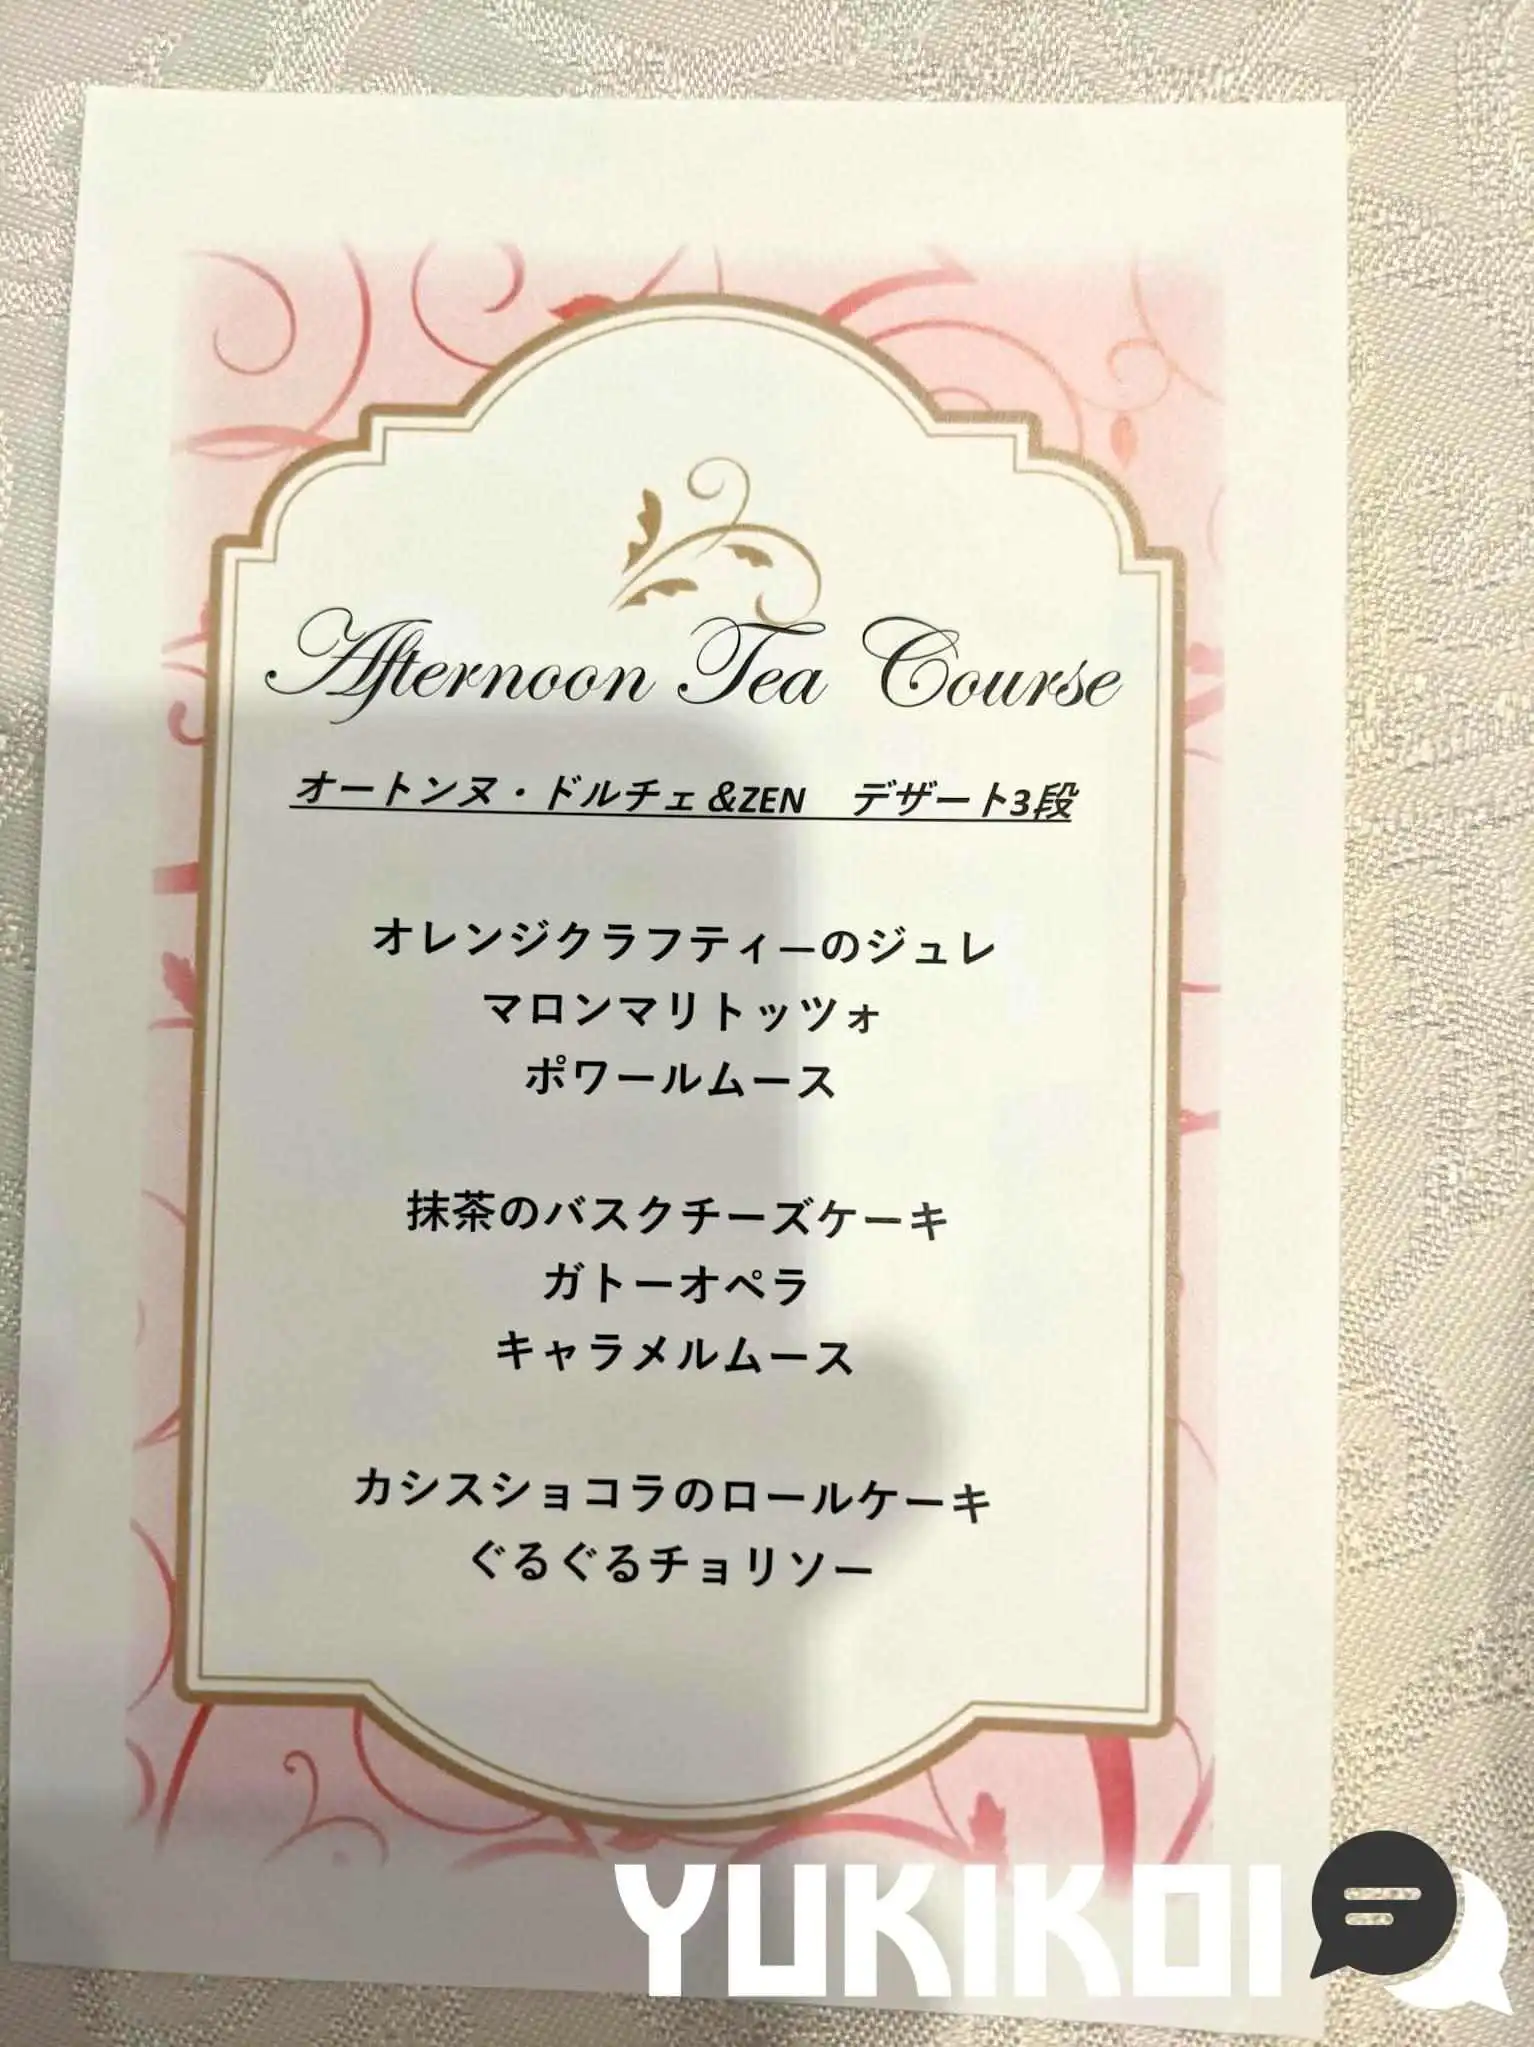 Afternoon Tea Course
オートンヌ・ドルチェ&ZEN　デザート3段
オレンジクラフティーのジュレ
マロンマリトッツォ
ポワールムース
抹茶のバスクチーズケーキ
ガトーオペラ
キャラメルムース
カシスショコラのロールケーキ
ぐるぐるチョリソー
YUKIKOI